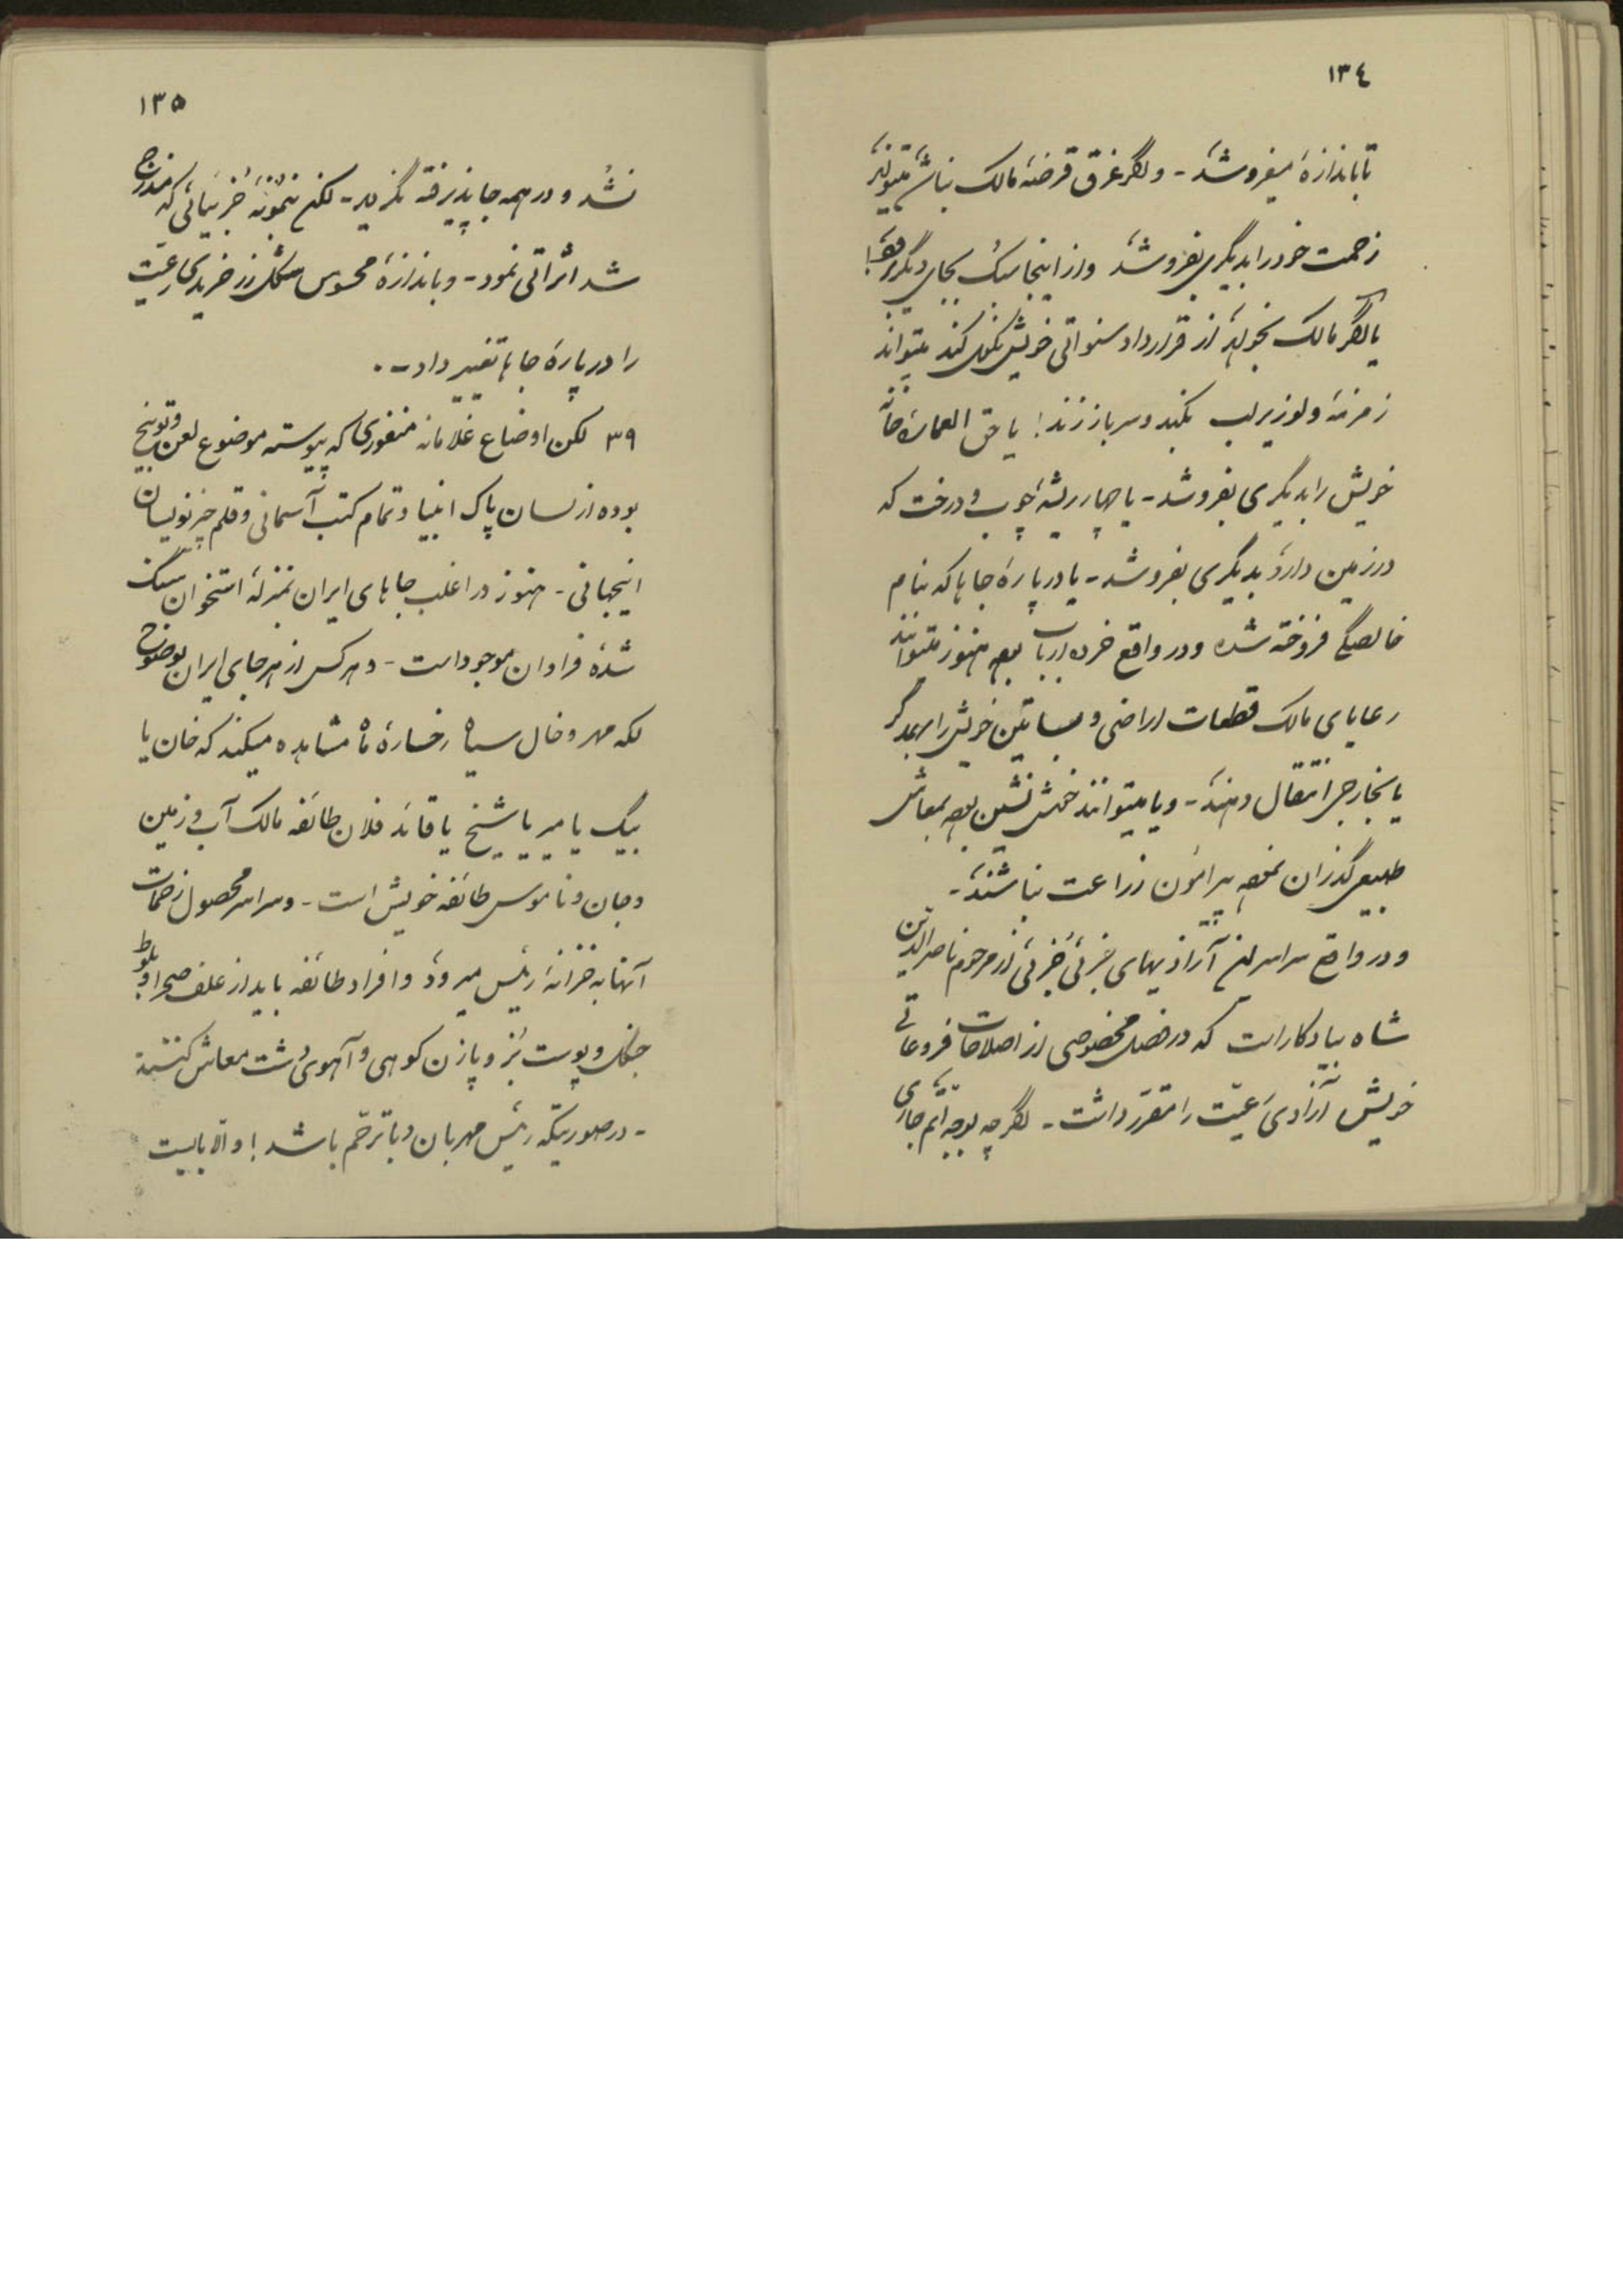 ١٣٤
تا باندازهٔ میفروشد - و اگر غرق قرضهٔ مالک نباشد میتواند
زحمت خود را بدیگری بفروشد و از اینجا بجای دیگر برود!
یا اگر مالک بخواهد از قرارداد سنواتی خویش نکول کند میتواند
زمزمهٔ ولو زیر لب بکند و سر باز زند! یا حق العمارهٔ خانهٔ
خویش را بدیگری بفروشد - یا چهار ریشهٔ چوب و درخت که
در زمین دارد بدیگری بفروشد - یا در پارهٔ جاها که بنام
خالصگی فروخته شده و در واقع خرده ارباب بوده هنوز میتوانند
رعایای مالک قطعات اراضی و بساتین خویش را بهمدگر
یا بخارج انتقال دهند - و یا میتوانند خوش نشین بوده بمعاش
طبیعی گذران نموده پیرامون زراعت نباشند -
و در واقع سراسر این آزادیهای جزئی جزئی از مرحوم ناصرالدین
شاه بیادگار است که در فصل مخصوصی از اصلاحات فروعاتی
خویش آزادی رعیّت را مقرّر داشت - اگرچه بوجه اتم جاری
١٣٥
نشد و در همه جا پذیرفته نگردید - لکن بنمونهٔ جزئیاتی که مندرج
شد اثراتی نمود - و باندازهٔ محسوس شکل زر خریدی رعیّت
را در پارهٔ جاها تغییر داد - .
٣٩ لکن اوضاع غلامانه منفوری که پیوسته موضوع لعن و توبیخ
بوده از لسان پاک انبیا و تمام کتب آسمانی و قلم خیرنویسان
اینجهانی - هنوز در اغلب جاهای ایران بمنزلهٔ استخوان سنگ
شده فراوان موجود است - و هر کس از هر جای ایران بوضوح
لکه مهر و خال سیاه رخسارهٔ ماه مشاهده میکند که خان یا
بیگ یا میر یا شیخ یا قائد فلان طائفه مالک آب و زمین
و جان و ناموس طائفه خویش است - و سراسر محصول زحمات
آنها به خزانهٔ رئیس میرود و افراد طائفه باید از علف صحرا و بلوط
جنگل و پوست بز و پازن کوهی و آهوی دشت معاش کنند
- در صورتیکه رئیس مهربان و با ترحّم باشد! و الّا بایست